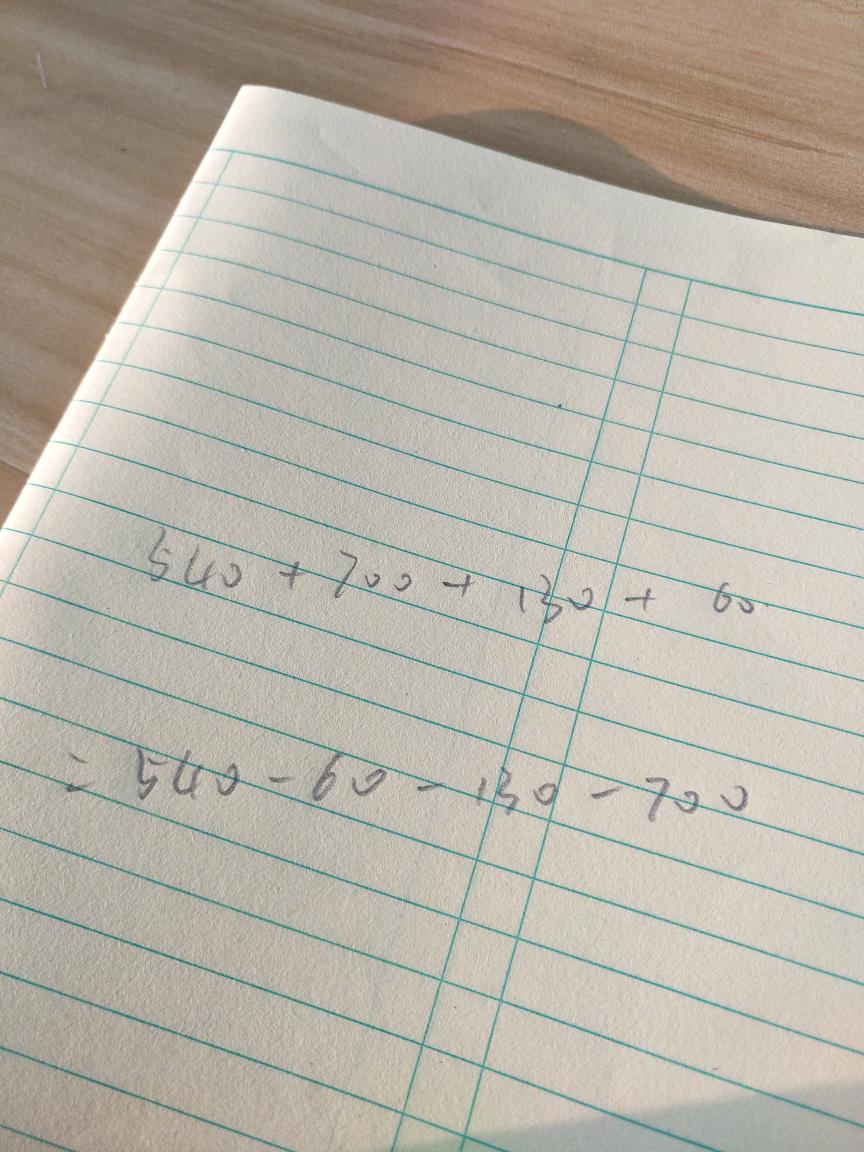 540 + 700 + 130 + 60
= 540 - 60 - 130 - 700